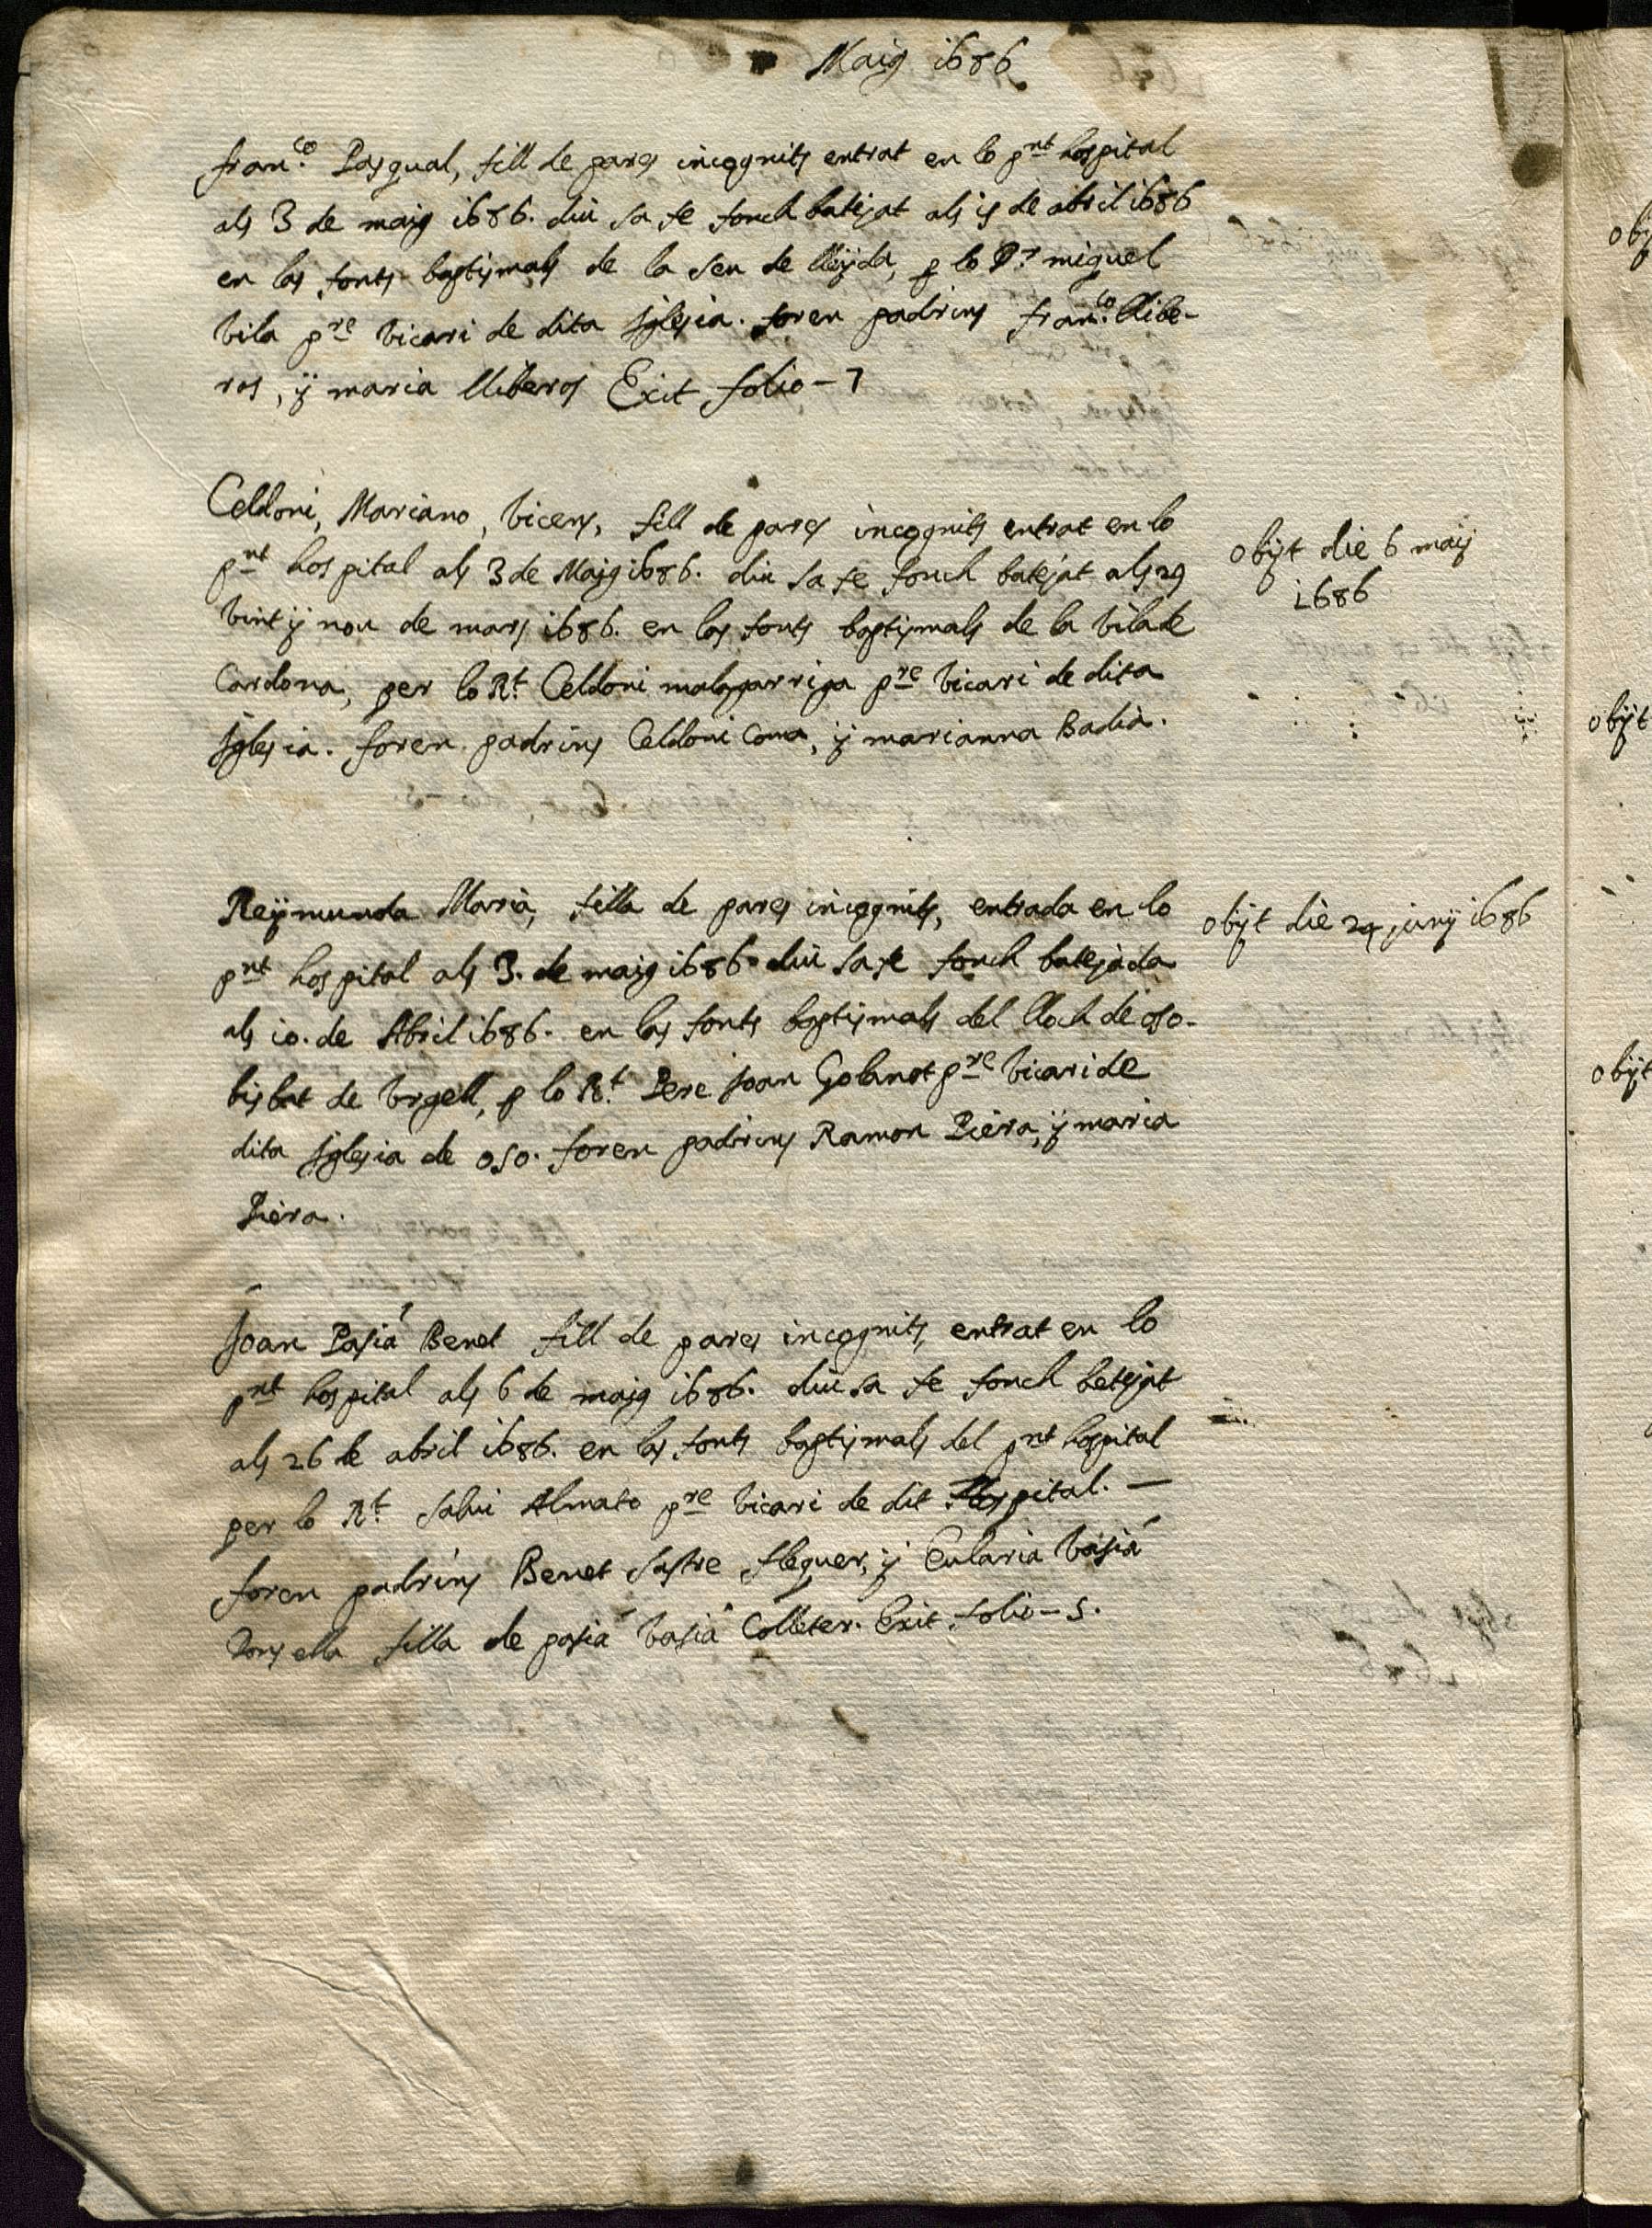 Maig 1686
fran.co Pasqual, fill de pares incognits entrat en lo pnt hospital
als 3 de maig 1686. diu sa fe fonch batejat als 15 de abril 1686
en las fonts baptismals de la seu de lleyda, p lo Dr miquel
vila pre vicari de dita Iglesia. foren padrins fran.co llibe-
ros, ÿ maria lliberos Exit folio - 7
Celdoni, Mariano, Vicens, fill de pares incognits entrat en lo
pnt hospital als 3 de Maig 1686. diu sa fe fonch batejat als 29
vint ÿ nou de mars 1686. en las fonts baptismals de la vila de
Cardona, per lo Rt. Celdoni malagarriga pre vicari de dita
Iglesia. foren padrins Celdoni Coma, ÿ marianna Badia.
obÿt die 6 maÿ
1686
Reÿmunda Maria, filla de pares incognits, entrada en lo
pnt hospital als 3. de maig 1686. diu sa fe fonch batejada
als 10. de Abril 1686. en las fonts baptismals del lloch de oso.
bisbat de Vrgell, p lo Rt. Pere Joan Gobanot pre vicari de
dita Iglesia de oso. foren padrins Ramon Piera, ÿ maria
Piera.
obÿt die 24 junÿ 1686
Joan Pasiá Benet fill de pares incognits, entrat en lo
pnt hospital als 6 de maig 1686. diu sa fe fonch betejat
als 26 de abril 1686. en las fonts baptismals del pnt hospital
per lo Rt. Salui Almato pre vicari de dit Hospital. —
foren padrins Benet Sastre flequer, ÿ Eularia Vasiá
Donsella filla de pasiá Vasiá Colleter. Exit folio - 5.
obÿt
obÿt